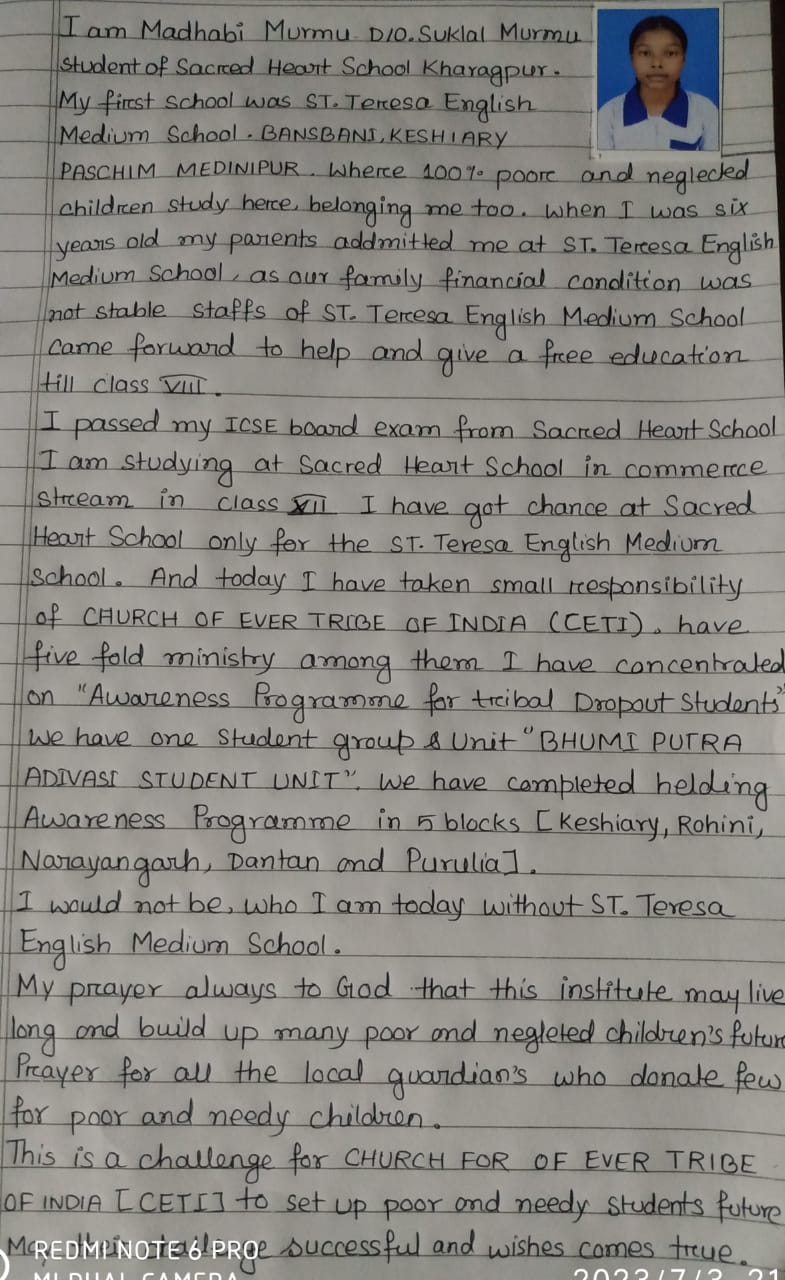 I am Madhabi Murmu D/O. Suklal Murmu
student of Sacred Heart School Kharagpur.
My first school was ST. Teresa English
Medium School. BANSBANI, KESHIARY
PASCHIM MEDINIPUR. Where 100% poor and neglecked
children study here, belonging me too. When I was six
years old my parents addmitted me at ST. Teresa English
Medium School, as our family financial condition was
not stable staffs of ST. Teresa English Medium School
came forward to help and give a free education
till class VIII.
I passed my ICSE board exam from Sacred Heart School
I am studying at Sacred Heart School in commerce
stream in class XII I have got chance at Sacred
Heart School only for the ST. Teresa English Medium
School. And today I have taken small responsibility
of CHURCH OF EVER TRIBE OF INDIA (CETI). have
five fold ministry among them I have concentrated
on "Awareness Programme for tribal Dropout Students"
We have one Student group & Unit "BHUMI PUTRA
ADIVASI STUDENT UNIT". We have completed helding
Awareness Programme in 5 blocks [Keshiary, Rohini,
Narayangarh, Dantan and Purulia].
I would not be, who I am today without ST. Teresa
English Medium School.
My prayer always to God that this institute may live
long and build up many poor and negleted children's futur
Prayer for all the local guardian's who donate few
for poor and needy children.
This is a challenge for CHURCH FOR OF EVER TRIBE
OF INDIA [CETI] to set up poor and needy students future
successful and wishes comes true.
REDMI NOTE 6 PRO
MI DUAL CAMERA
2023/7/3 21